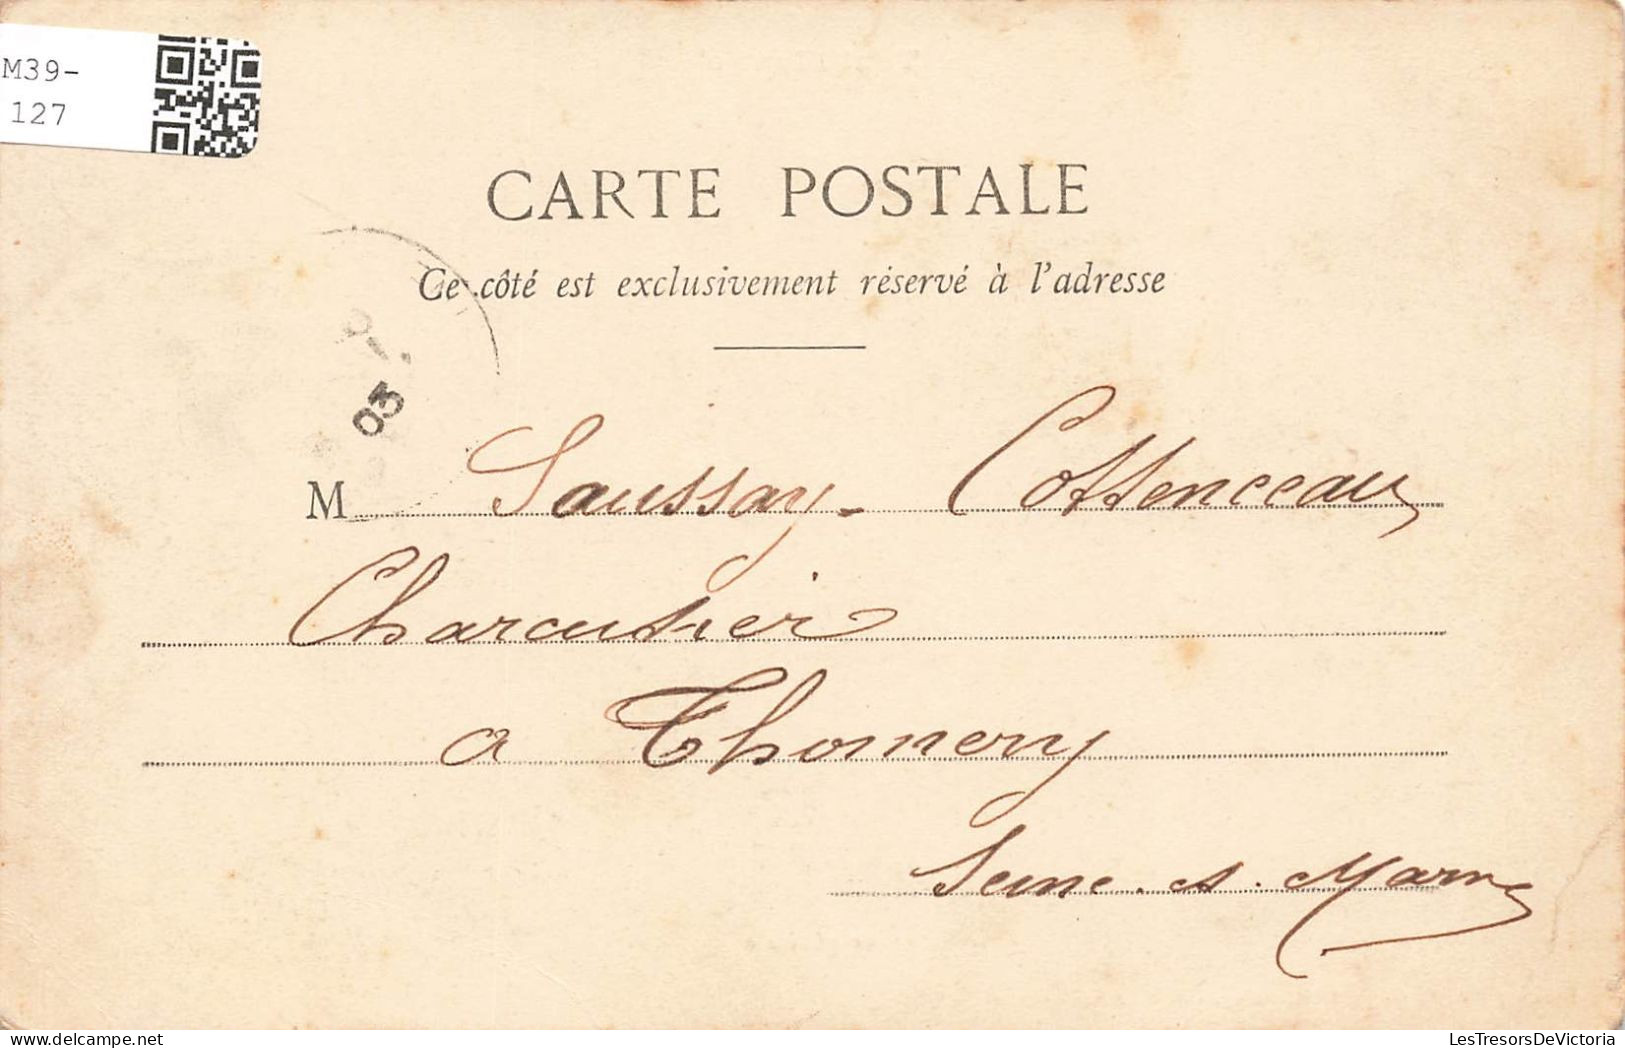 M39-
127
CARTE POSTALE
Ce côté est exclusivement réservé à l'adresse
03
M Saussay - Cottenceau
Charcutier
a Thomery
Seine. et. Marne
LesTresorsDeVictoria